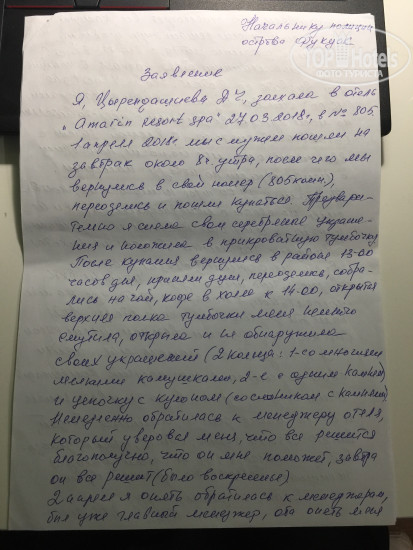 Начальнику полиции
острова Фукуок
TopHotels
ФОТО ТУРИСТА
Заявление
Я, Цырендашиева Д Ч, заехала в отель
"Amarin resort spa" 27.03.2018г, в № 805.
1 апреля 2018г мы с мужем пошли на
завтрак около 8ч. утра, после чего мы
вернулись в свой номер (805 комн),
переоделись и пошли купаться. Предвари-
тельно я сняла свои серебряные украше-
ния и положила в прикроватную тумбочку
После купания вернулись в районе 13-00
часов дня, приняли душ, переоделись, собра-
лись на чай, кофе в холле к 14-00, открытая
верхняя полка тумбочки меня немного
смутила, открыла и не обнаружила
своих украшений (2 кольца: 1-со многими
мелкими камушками, 2-е с одним камнем)
и цепочку с кулоном (со слоником с камнями)
Немедленно обратилась к менеджеру отеля,
который уверовал меня, что все решится
благополучно, что он мне поможет, завтра
он все решит (было воскресенье)
2 апреля я опять обратилась к менеджерам,
был уже главный менеджер, опять меня